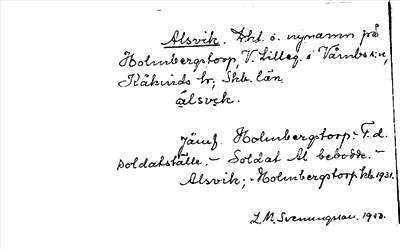 Alsvik. Dkt. o. nynamn på
Holmbergstorp, V. Lilleg. i Våmbs sn,
Kåkinds hr, Skb. län.
ạlsvɛk.
Jämf. Holmbergstorp: F. d.
soldatställe. – Soldat Al bebodde. –
Alsvik; Holmbergstorp kb 1931.
L. M. Svenungsson. 19